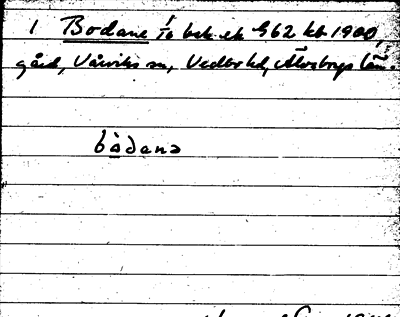 1 Bodane 1/16 bek. ek 962 kb 1900,
gård, Vårviks sn, Vedbo hd, Älvsborgs län.
bådanə